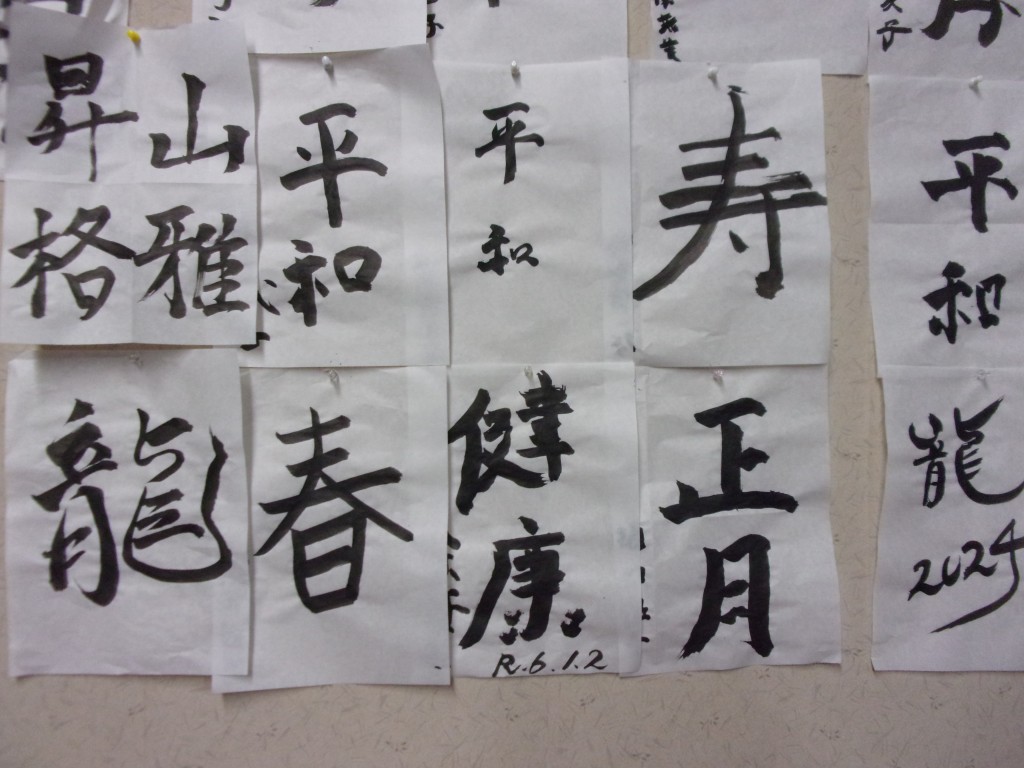 山雅
昇格
平和
平和
寿
平和
龍
春
健康
R.6.1.2
正月
龍
2024